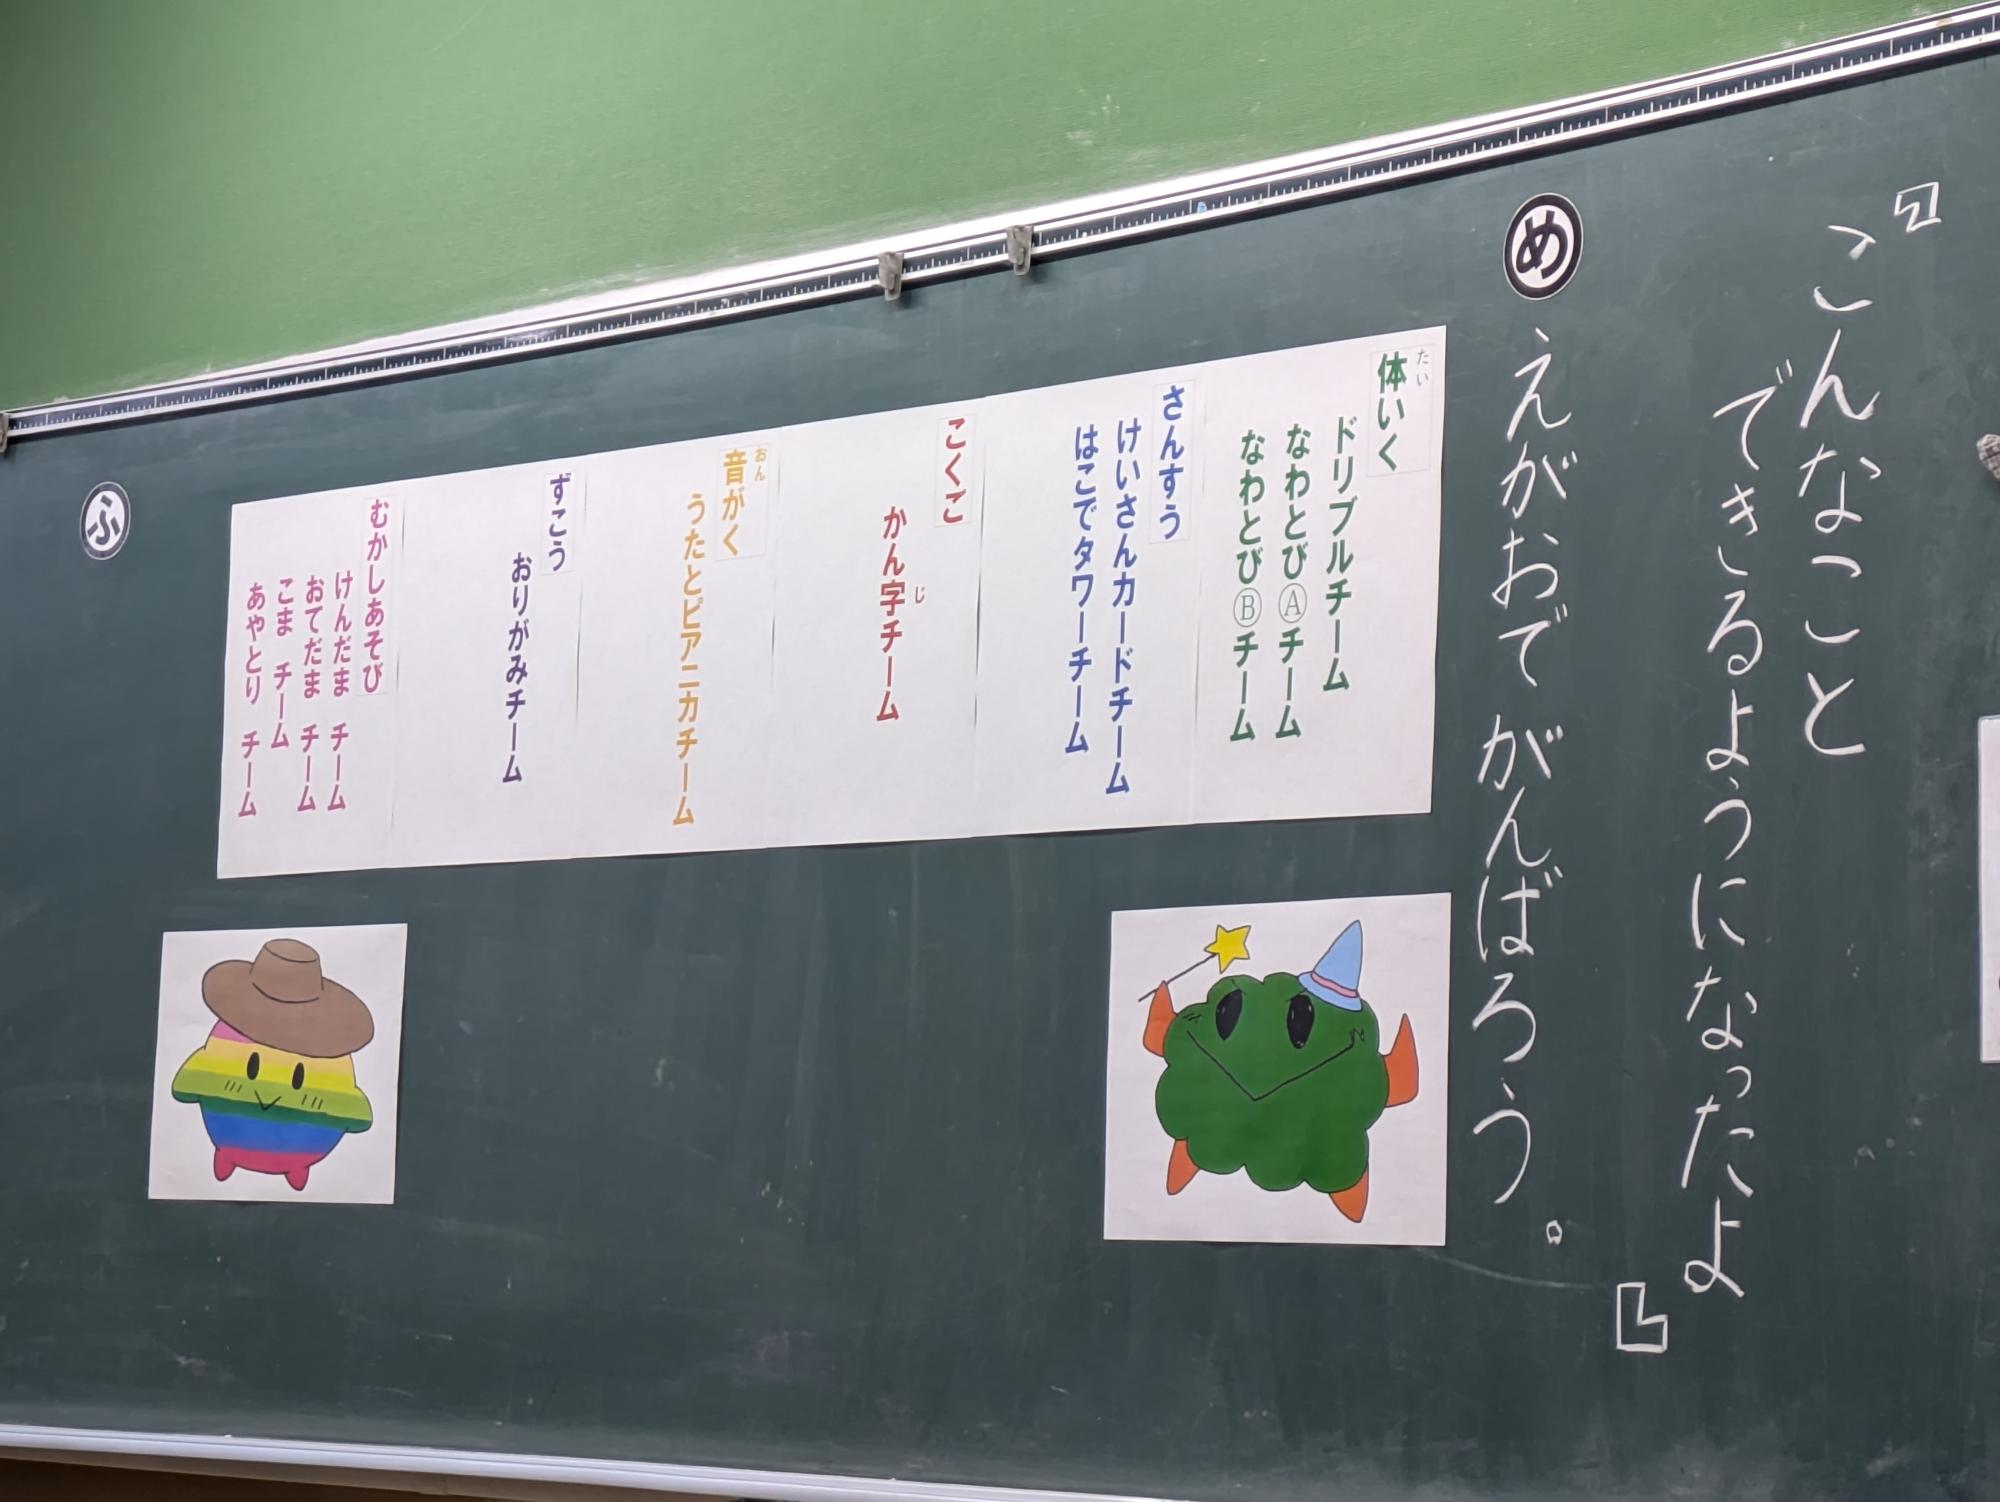 『こんなこと
できるようになったよ』
め
えがおで がんばろう。
体いく
たい
ドリブルチーム
なわとびⒶチーム
なわとびⒷチーム
さんすう
けいさんカードチーム
はこでタワーチーム
こくご
かん字チーム
じ
音がく
おん
うたとピアニカチーム
ずこう
おりがみチーム
むかしあそび
けんだま チーム
おてだま チーム
こま チーム
あやとり チーム
ふ